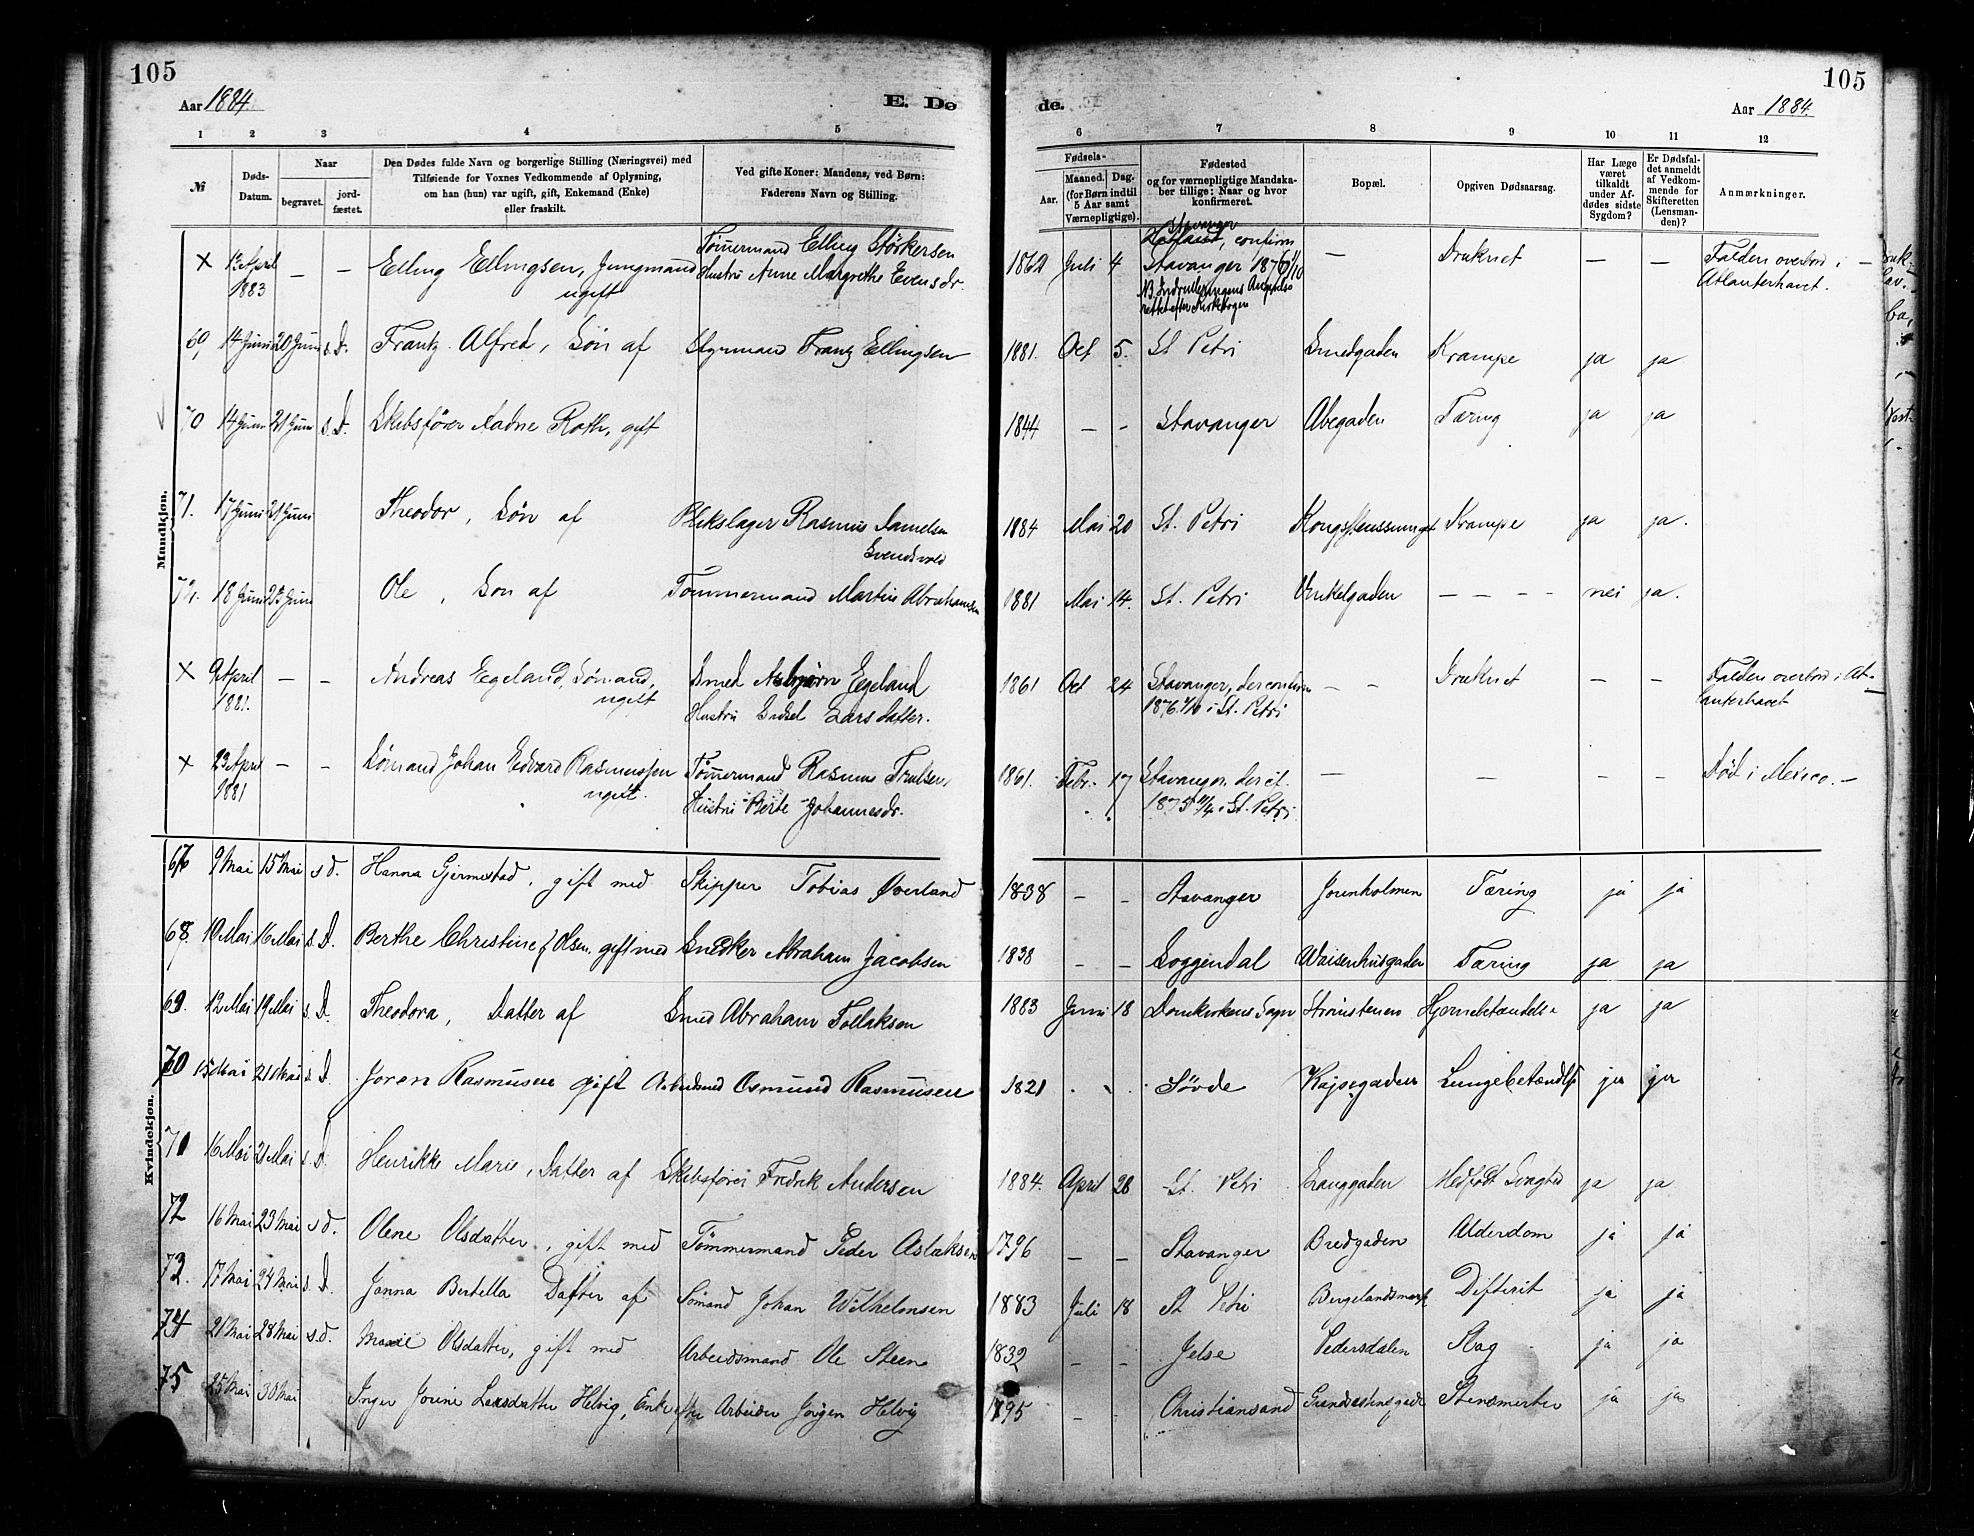 105
105
Aar 1884.
E. Dø
de.
Aar 1884.
1 2 3 4 5 6 7 8 9 10 11 12
№
Døds-Datum.
Naar
begravet.
jord-fæstet.
Den Dødes fulde Navn og borgerlige Stilling (Næringsvei) med
Tilføiende for Voxnes Vedkommende af Oplysning,
om han (hun) var ugift, gift, Enkemand (Enke)
eller fraskilt.
Ved gifte Koner: Mandens, ved Børn:
Faderens Navn og Stilling.
Fødsels-
Aar.
Maaned. Dag.
(for Børn indtil
5 Aar samt
Værnepligtige).
Fødested
og for værnepligtige Mandska-
ber tillige: Naar og hvor
konfirmeret.
Bopæl.
Opgiven Dødsaarsag.
Har Læge
været
tilkaldt
under Af-
dødes sidste
Sygdom?
Er Dødsfal-
det anmeldt
af Vedkom-
mende for
Skifteretten
(Lensman-
den)?
Anmærkninger.
Mandkjøn.
× 13 April 1883 – – Elling Ellingsen, Jungmand ugift Tømmermand Elling Störkersen Hustru Anne Margrethe Evensdr. 1862 Juli 4 Stavanger, confirm Stavanger 1876 1/10 – Druknet – – Falden overbord i Atlanterhavet.
69 14 Juni 20 Juni s. D. Frantz Alfred, Søn af Styrmand Frantz Ellingsen 1881. Oct 5. St Petri Smedgaden Krampe ja ja
70 14 Juni 21 Juni s. D. Skibsfører Aadne Roth, gift 1844 – – Stavanger Abegaden Tæring ja ja
71. 17 Juni 21 Juni Theodor, Søn af Blikslager Rasmus Svendsvold 1884 Mai 20 St. Petri Krampe ja ja.
72. 18 Juni 23 Juni Ole, Søn af Tømmermand Martin Abrahamsen 1881 Mai 14. St. Petri Vinkelgaden – – – – nei ja.
× 9 April 1881. – – Andreas Egeland, Sömand, ugift Smed Asbjørn Egeland Hustru Sidsel Larsdatter. 1861 Oct 24 Stavanger, der confirm 1876 1/10 i St. Petri – – Druknet – – Falden overbord i Atlanterhavet
× 23 April 1881 – – Sømand Johan Edvard Rasmussen ugift. Tømmermand Rasmus Trulsen, Hustru Berte Johannesdr. 1861. Febr. 17 Stavanger, der cf. 1875 11/4 i St. Petri – – – – Död i Mexico. –
Kvindekjøn.
67 9 Mai 15 Mai s D. Hanna Gjermestad, gift med Skipper Tobias Øverland 1838 – – Stavanger Jorenholmen Tæring ja ja
68. 10 Mai 16 Mai s. D. Berthe Christine f. Olsen, gift med Snedker Abraham Jacobsen 1838 – – Soggendal Waisenhusgaden Tæring ja ja
69. 12 Mai 19 Mai s. D. Theodora, Datter af Smed Abraham Tollaksen 1883 Juni 18 Domkirkens Sogn Strømstenen Hjernebetændelse ja ja
70 15 Mai 21 Mai s D. Joren Rasmussen gift Arbeidsmd Osmund Rasmussen 1821 Søvde Kajsegaden Lungebetændelse ja ja
71 16 Mai 21 Mai s. D. Henrikke Marie, Datter af Skibsfører Fredrik Andersen 1884. April 28 St. Petri Langgaden Medfødt ja ja
72 16 Mai 23 Mai s D. Olene Olsdatter, gift med Tømmermand Peder Aslaksen 1796 – – Stavanger Bredgaden Alderdom ja ja
73. 17 Mai 24 Mai s. D. Janna Bertella Datter af Sømand Johan Wilhelmsen 1883 Juli 18 St Petri Bergelandsmark Difterit ja ja
74 21 Mai 28 Mai s. D. Marie Olsdatter, gift med Arbeidsmand Ole Steen 1832 – – Jelse Pedersdalen Slag ja ja
75 25 Mai 30 Mai Inger Jorine Larsdatter Helvig, Enke efter Arbeider Jörgen Helvig 1795 – – Christiansand Stensmerter ja ja